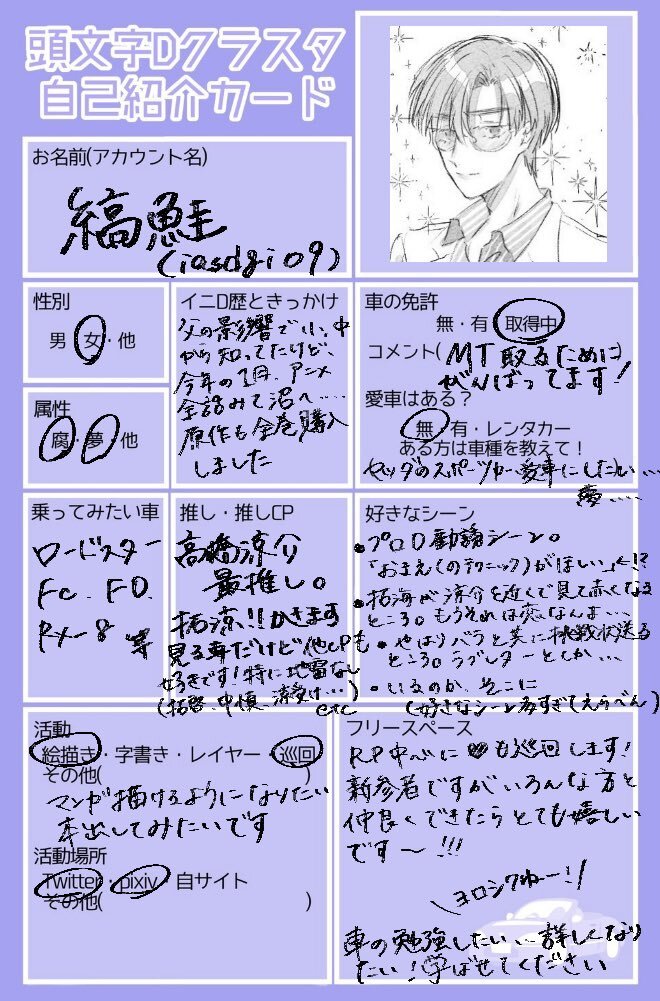 頭文字Dクラスタ
自己紹介カード
お名前(アカウント名)
縞鮭
(iasdgi09)
性別
男・女・他
属性
腐・夢・他
イニD歴ときっかけ
父の影響で小、中
から知ってたけど、
今年の1月、アニメ
全話みて沼へ……
原作も全巻購入
しました
車の免許
無・有・取得中
コメント(MT取るために)
がんばってます!
愛車はある?
無・有・レンタカー
ある方は車種を教えて!
マツダのスポーツカー愛車にしたい…
夢……
乗ってみたい車
ロードスター
FC、FD、
RX-8 等
推し・推しCP
高橋涼介
最推し。
拓涼!!かきます
見る専だけど他CPも
好きです!特に地雷なし
(拓啓、中慎、涼受け…)
etc
好きなシーン
・プロD勧誘シーン。
「おまえ(のテクニック)がほしい」←!?
・拓海が涼介を近くで見て赤くなる
ところ。もうそれは恋なんよ…
・やはりバラと共に挑戦状送る
ところ。ラブレターとしか…
・いるのか、そこに
(好きなシーン多すぎてえらべん)
活動
絵描き・字書き・レイヤー・巡回
その他( )
マンガ描けるようになりたい
本出してみたいです
活動場所
Twitter・pixiv・自サイト
その他( )
フリースペース
RP中心に も巡回します!
新参者ですがいろんな方と
仲良くできたらとても嬉しい
です〜!!!
\ヨロシクねー!/
車の勉強したい…詳しくなり
たい!学ばせてください